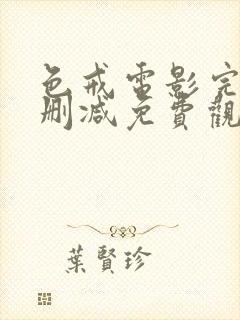 色戒电影完
删减免費觀
葉賢珍